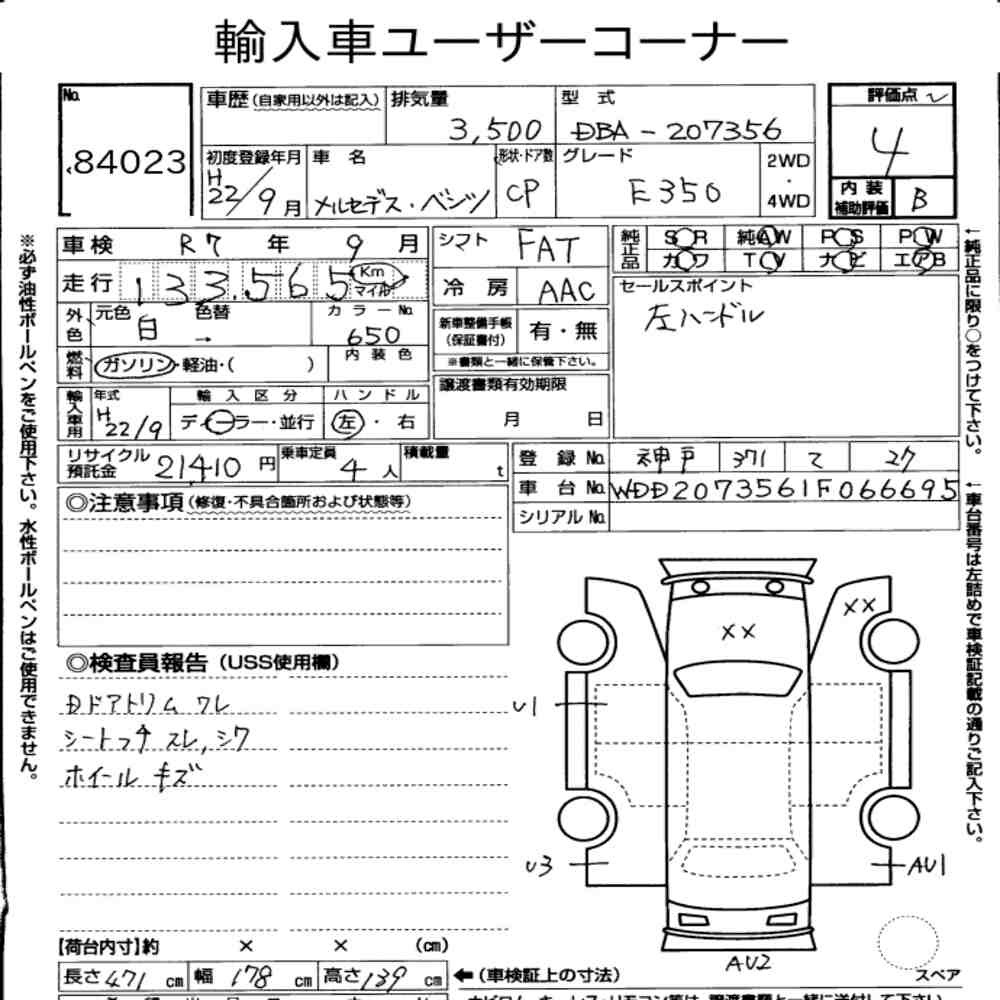 輸入車ユーザーコーナー
No. 84023
車歴(自家用以外は記入) 排気量 3,500 型式 DBA-207356
評価点 4
初度登録年月 H22/9月 車名 メルセデス・ベンツ 形状・ドア数 CP グレード E350 2WD・4WD
内装補助評価 B
車検 R7年9月 シフト FAT
純正品 SR 純AW PS PW
カワ TV ナビ エアB
走行 133,565 Km マイル 冷房 AAC
セールスポイント
左ハンドル
外色 元色 白 色替 → カラーNo. 650
新車整備手帳(保証書付) 有・無
※書類と一緒に保管下さい。
燃料 ガソリン・軽油・( ) 内装色
譲渡書類有効期限 月 日
輸入車用 年式 H22/9 輸入区分 ディーラー・並行 ハンドル 左・右
リサイクル預託金 21410円 乗車定員 4人 積載量 t
登録No. 神戸 371 て 27
車台No. WDD2073561F066695
シリアルNo.
◎注意事項(修復・不具合箇所および状態等)
◎検査員報告(USS使用欄)
Dドアトリム ワレ
シート スレ、シワ
ホイール キズ
XX
XX
U1
U3
AU1
AU2
スペア
【荷台内寸】約 × × (cm)
長さ471cm 幅178cm 高さ139cm ←(車検証上の寸法)
※必ず油性ボールペンをご使用下さい。水性ボールペンはご使用できません。
←純正品に限り○をつけて下さい。
←車台番号は左詰めで車検証記載の通りご記入下さい。